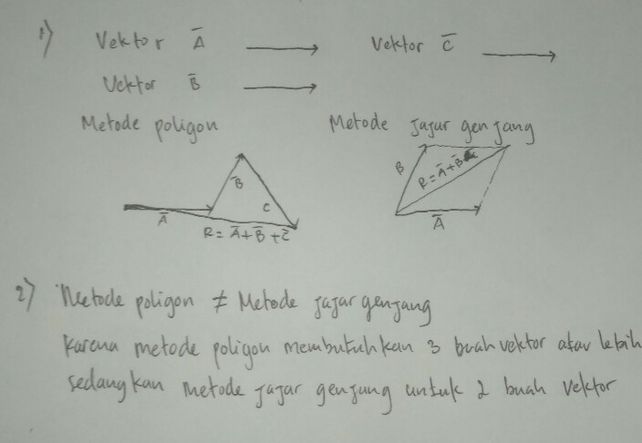 1) Vektor A̅ Vektor C̅
Vektor B̅
Metode poligon Metode Jajar genjang
A̅ B̅ C R = A̅ + B̅ + C̅
B R = A̅ + B̅ A̅
2) Metode poligon ≠ Metode jajar genjang
Karena metode poligon membutuhkan 3 buah vektor atau lebih
sedangkan metode jajar genjang untuk 2 buah vektor